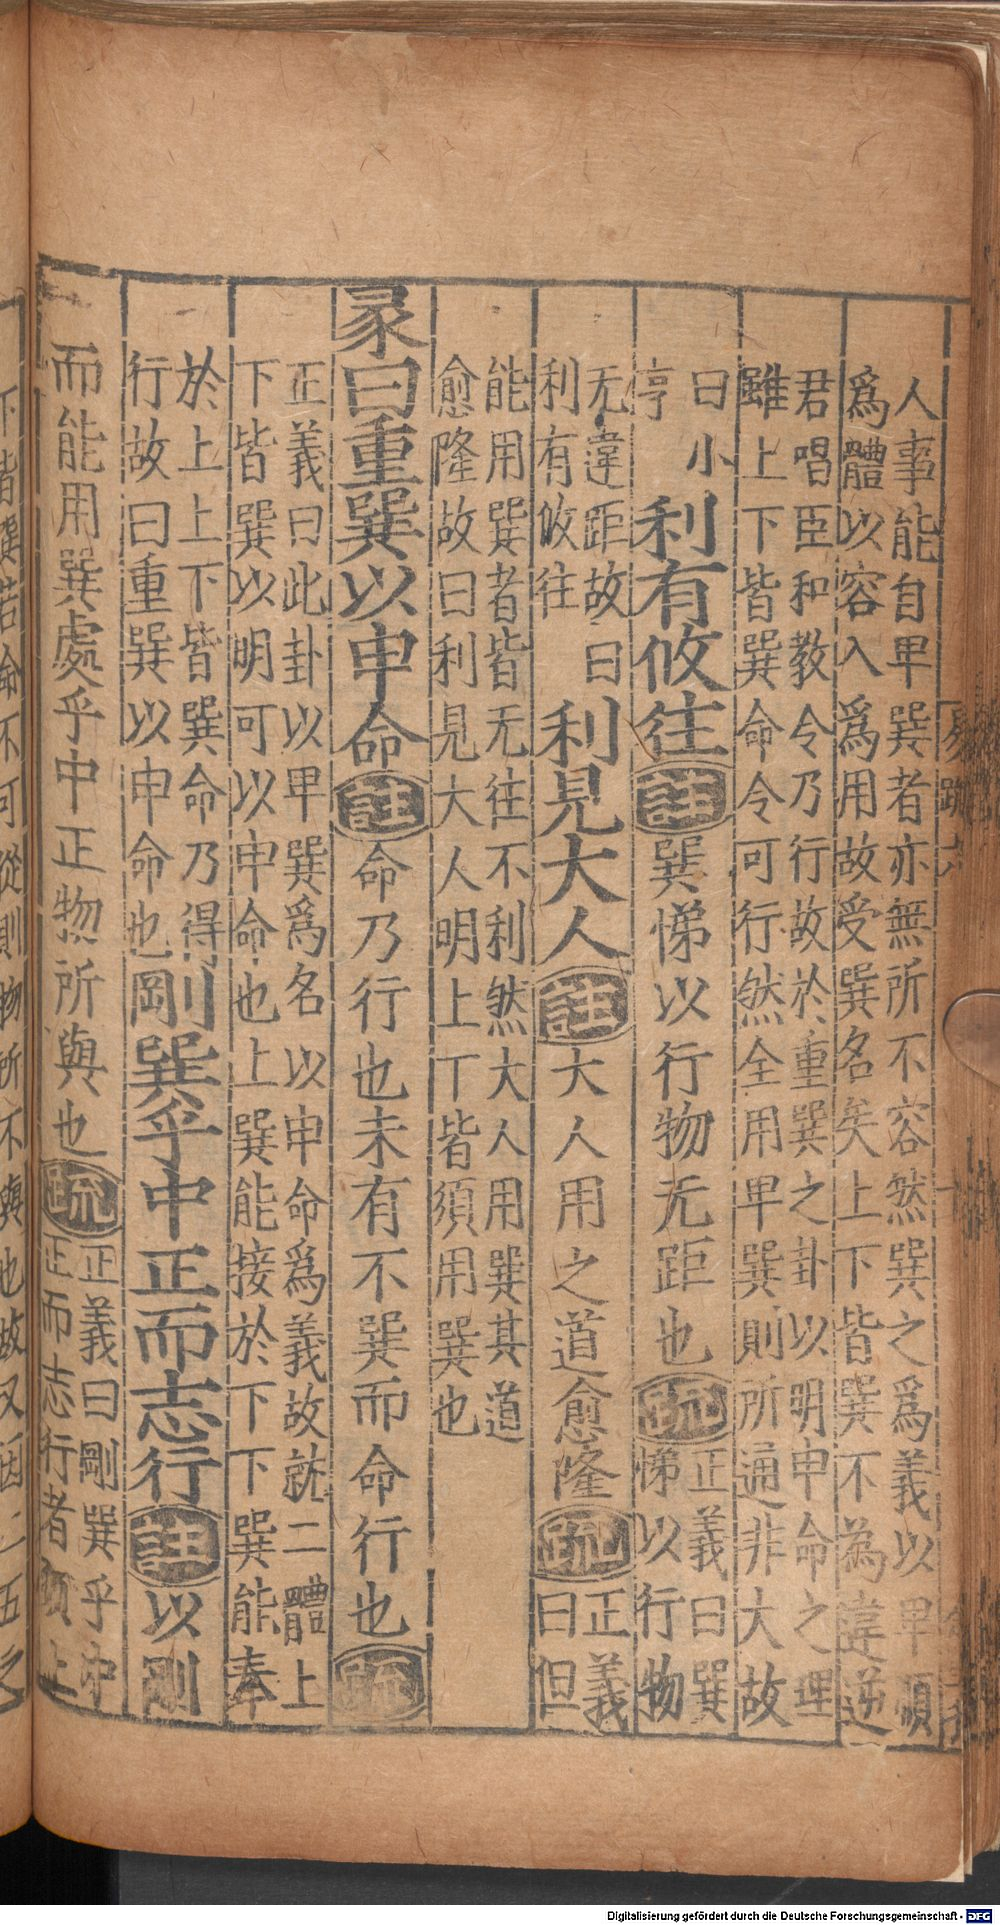 人事能自卑巽者亦無所不容然巽之為義以卑順
爲體以容入爲用故受巽名矣上下皆巽不為違逆
君唱臣和教令乃行故於重巽之卦以明申命之理
雖上下皆巽命令可行然全用卑巽則所通非大故
曰小
亨
利有攸往註巽悌以行物无距也疏
正義曰巽
悌以行物
无違距故曰
利有攸往
利見大人註大人用之道愈隆疏
正義
曰但
能用巽者皆无往不利然大人用巽其道
愈隆故曰利見大人明上下皆須用巽也
彖曰重巽以申命註命乃行也未有不巽而命行也疏
正義曰此卦以卑巽爲名以申命爲義故就二體上
下皆巽以明可以申命也上巽能接於下下巽能奉
於上上下皆巽命乃得
行故曰重巽以申命也
剛巽乎中正而志行註以剛
而能用巽處乎中正物所與也疏
正義曰剛巽乎中
正而志行者須上
下皆巽若命不可從則物所不與也故又因二五之
易疏六
Digitalisierung gefördert durch die Deutsche Forschungsgemeinschaft - DFG